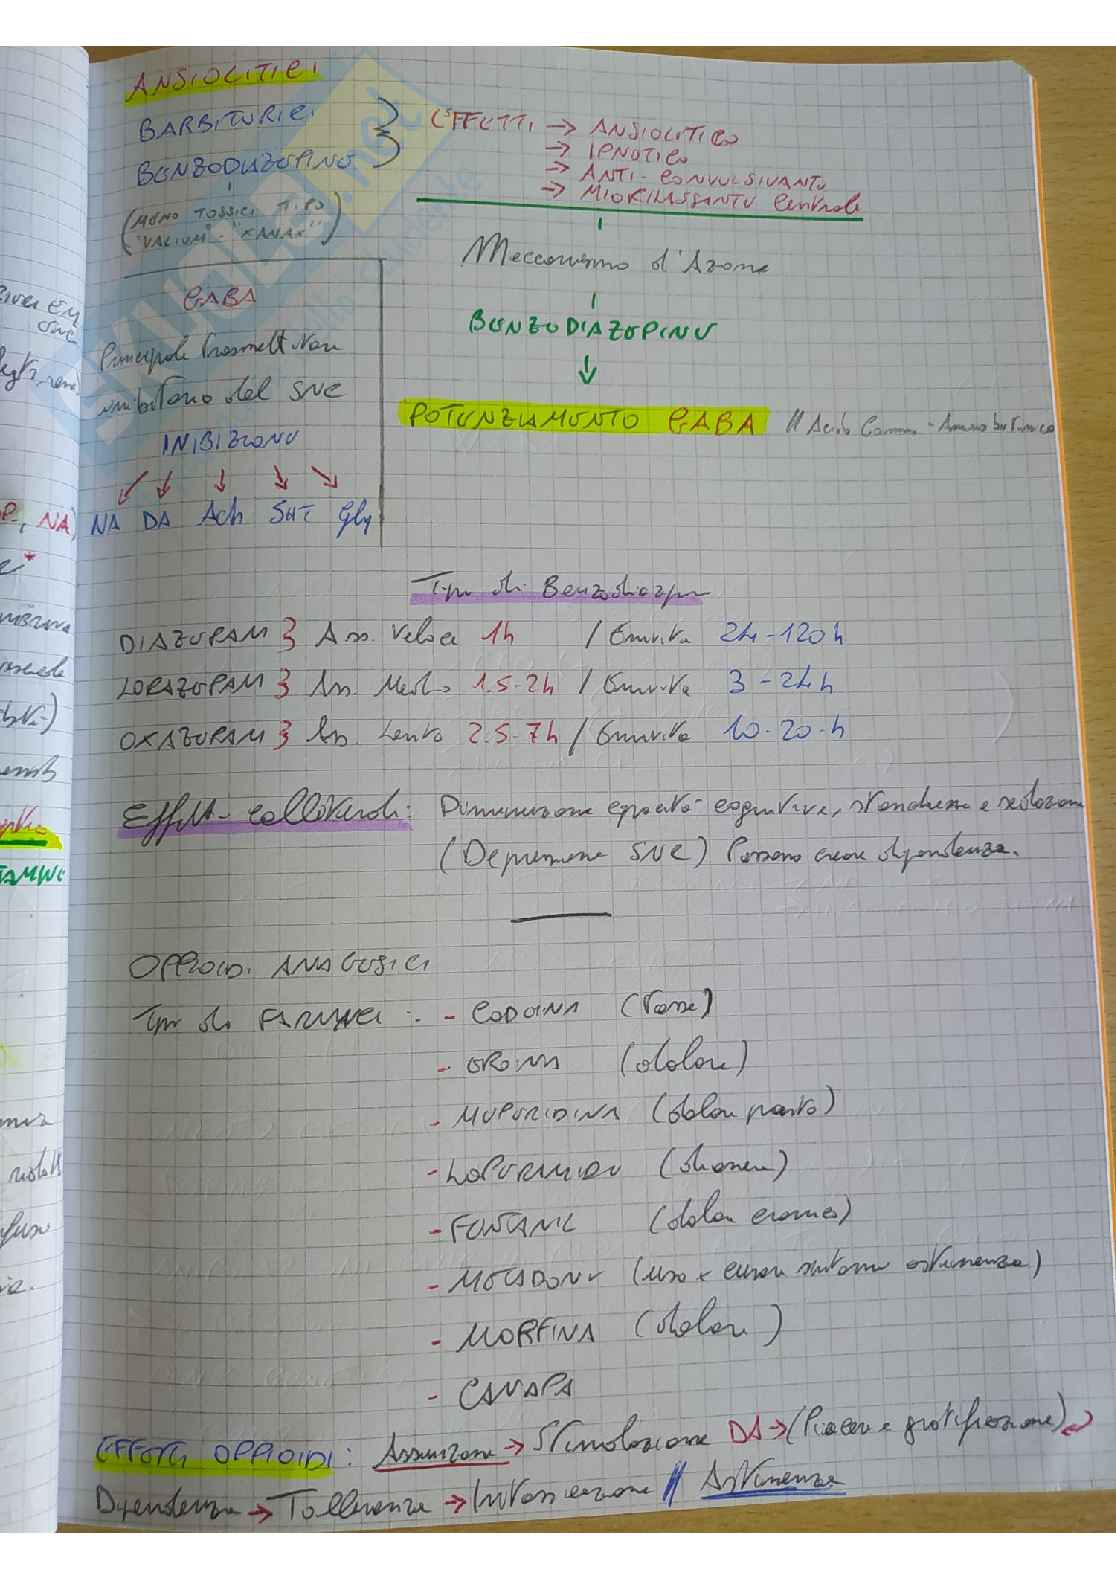 ANSIOLITICI
BARBITURICI
BENZODIAZEPINE
(MENO TOSSICI TIPO
"VALIUM" - "XANAX")
EFFETTI → ANSIOLITICO
→ IPNOTICO
→ ANTI-CONVULSIVANTE
→ MIORILASSANTE Centrale
Meccanismo d'Azione
BENZODIAZEPINE
POTENZIAMENTO GABA // Acido Gamma-Amminobutirrico
GABA
Principale trasmettitore
inibitorio del SNC
INIBIZIONE
NA DA Ach 5HT Gly
Tipi di Benzodiazepine
DIAZEPAM } Ass. Veloce 1h / Emivita 24-120h
LORAZEPAM } Ass. Medio 1.5-2h / Emivita 3-24h
OXAZEPAM } Ass. Lento 2.5-7h / Emivita 10-20-h
Effetti collaterali: Diminuzione capacità cognitive, stanchezza e sedazione
(Depressione SNC) Possono creare dipendenza.
OPPIOIDI ANALGESICI
Tipi di FARMACI : - CODEINA (Tosse)
- EROINA (dolore)
- MEPERIDINA (dolore parto)
- LOPERAMIDE (diarrea)
- FENTANIL (dolore cronico)
- METADONE (uso x curare sintomi astinenza)
- MORFINA (dolore)
- CANAPA
EFFETTI OPPIOIDI : Assunzione → Stimolazione DA → (Piacere e gratificazione)
Dipendenza → Tolleranza → Intossicazione // Astinenza